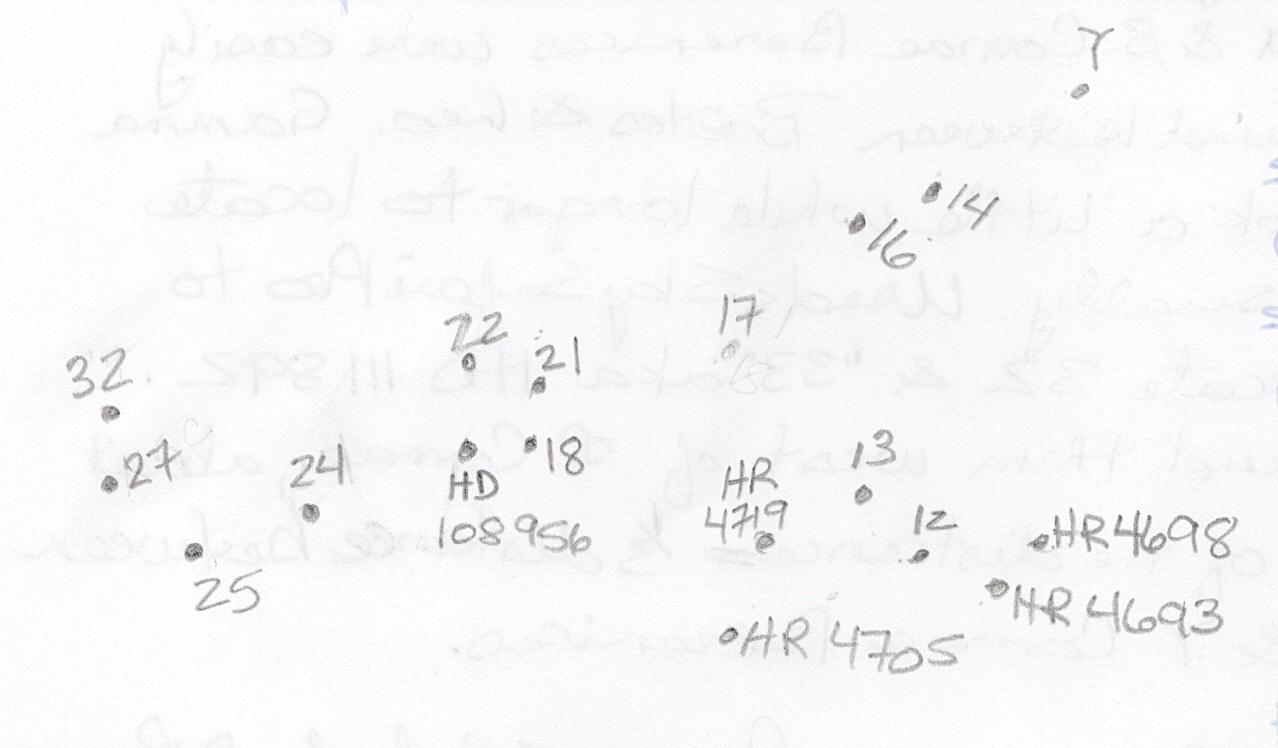 γ
14
16
17
22
21
32
27
24
18
13
HD
108956
HR
4719
12
HR 4698
25
HR 4693
HR 4705